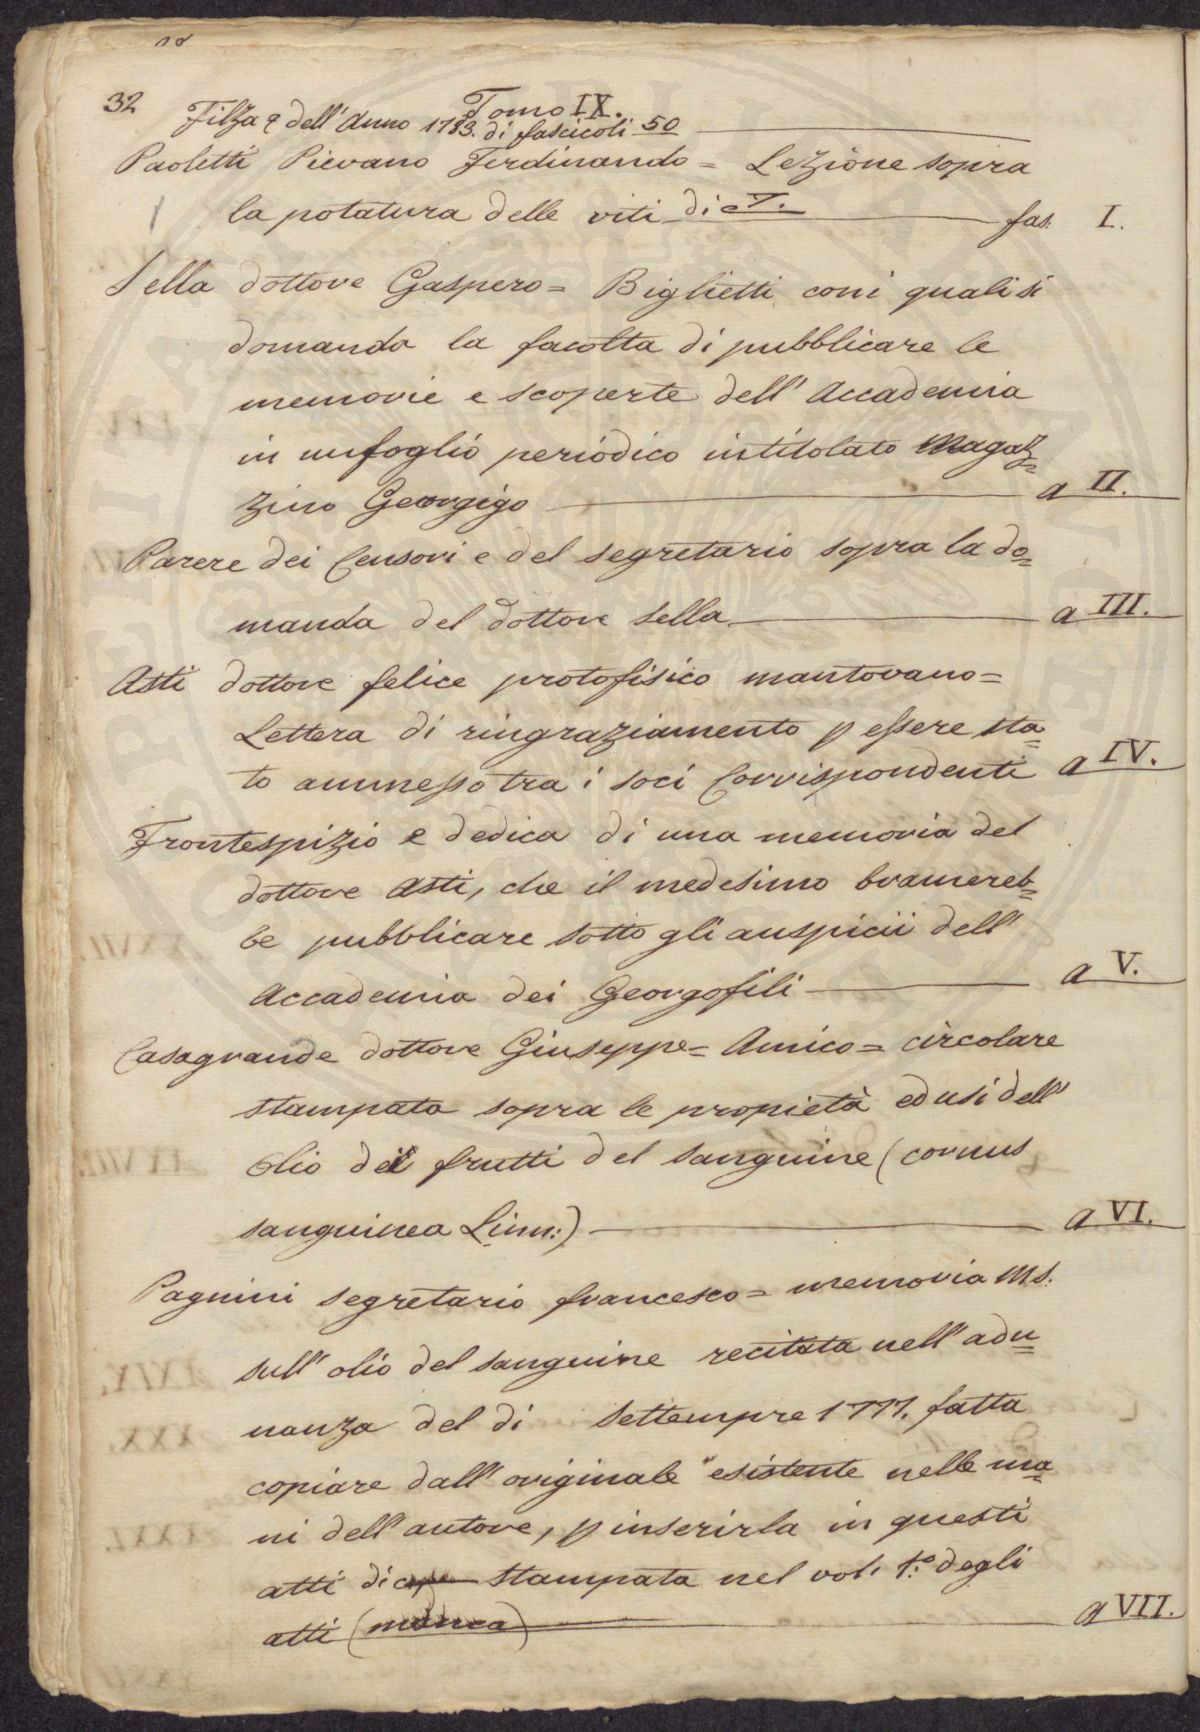 32
Tomo IX.
Filza 9 dell' Anno 1783. di fascicoli 50
Paoletti Pievano Ferdinando = Lezione sopra
la potatura delle viti di c. 7. fas: I.
Sella dottore Gaspero = Biglietti con i quali si
domanda la facolta di pubblicare le
memorie e scoperte dell' Accademia
in un foglio periodico intitolato Magaz=
zino Georgigo a II.
Parere dei Censori e del segretario sopra la do=
manda del dottore Sella a III.
Asti dottore felice protofisico mantovano =
Lettera di ringraziamento p essere sta=
to ammesso tra i soci Corrispondenti a IV.
Frontespizio e dedica di una memoria del
dottore Asti, che il medesimo brameret=
be pubblicare sotto gli auspicii dell'
Accademia dei Georgofili a V.
Casagrande dottore Giuseppe = Amico = circolare
stampata sopra le propietà ed usi dell'
Olio dei frutti del sanguine (cornus
sanguinea Linn:) a VI.
Pagnini segretario francesco = memoria Ms.
sull' olio del sanguine recitata nell' adu=
nanza del di settempre 1777. fatta
copiare dall' originale esistente nelle ma=
ni dell' autore, p inserirla in questi
atti di stampata nel vol. 1.º degli
atti (manca) a VII.